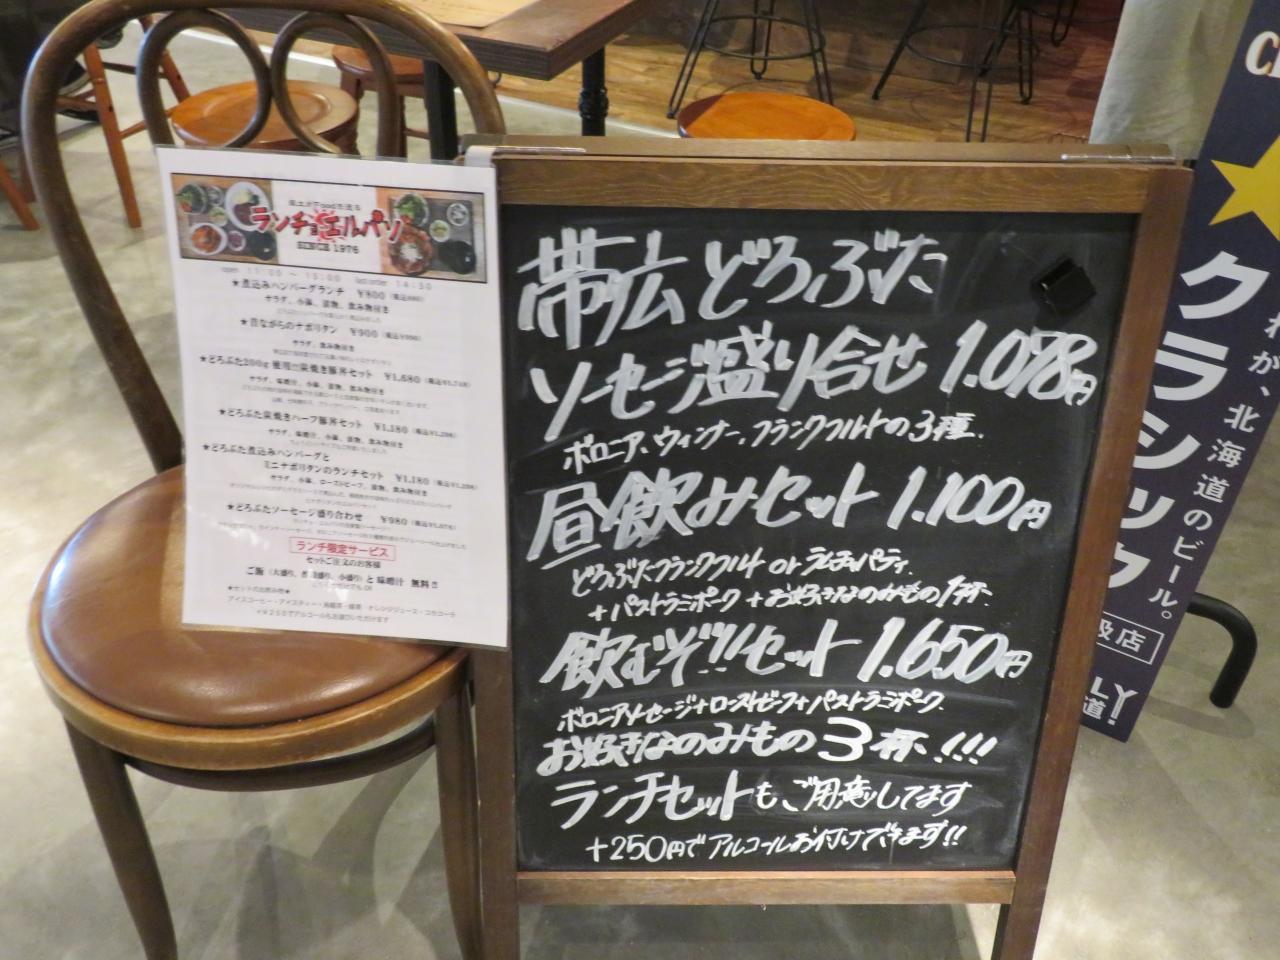 ランチョ・エルパソ
SINCE 1976
open 11:00 ～ 15:00 last order 14:30
★煮込みハンバーグランチ ¥800
サラダ、小鉢、漬物、飲み物付き
★昔ながらのナポリタン ¥900
サラダ、飲み物付き
★どろぶた200g使用 炭焼き豚丼セット ¥1,680
サラダ、味噌汁、小鉢、漬物、飲み物付き
★どろぶた炭焼きハーフ豚丼セット ¥1,180
サラダ、味噌汁、小鉢、漬物、飲み物付き
★どろぶた煮込みハンバーグと
ミニナポリタンのランチセット ¥1,180
サラダ、小鉢、ローストビーフ、漬物、飲み物付き
★どろぶたソーセージ盛り合わせ ¥980
ランチ限定サービス
セットご注文のお客様
ご飯（大盛り、普通盛り、小盛り）と味噌汁 無料!!
★セットのお飲み物★
アイスコーヒー・アイスティー・烏龍茶・緑茶・オレンジジュース・コカコーラ
+¥250でアルコールもお選びいただけます
帯広どろぶた
ソーセージ盛り合せ 1.078円
ボロニア、ウィンナー、フランクフルトの3種.
昼飲みセット 1.100円
どろぶたフランクフルト or ラムチョパティ.
+パストラミポーク +お好きなのみもの1杯.
飲むぞ!!セット 1.650円
ボロニアソーセージ+ローストビーフ+パストラミポーク.
お好きなのみもの3杯.!!!
ランチセットもご用意してます
+250円でアルコールお付けできます!!
クラシック
わが、北海道のビール。
扱店